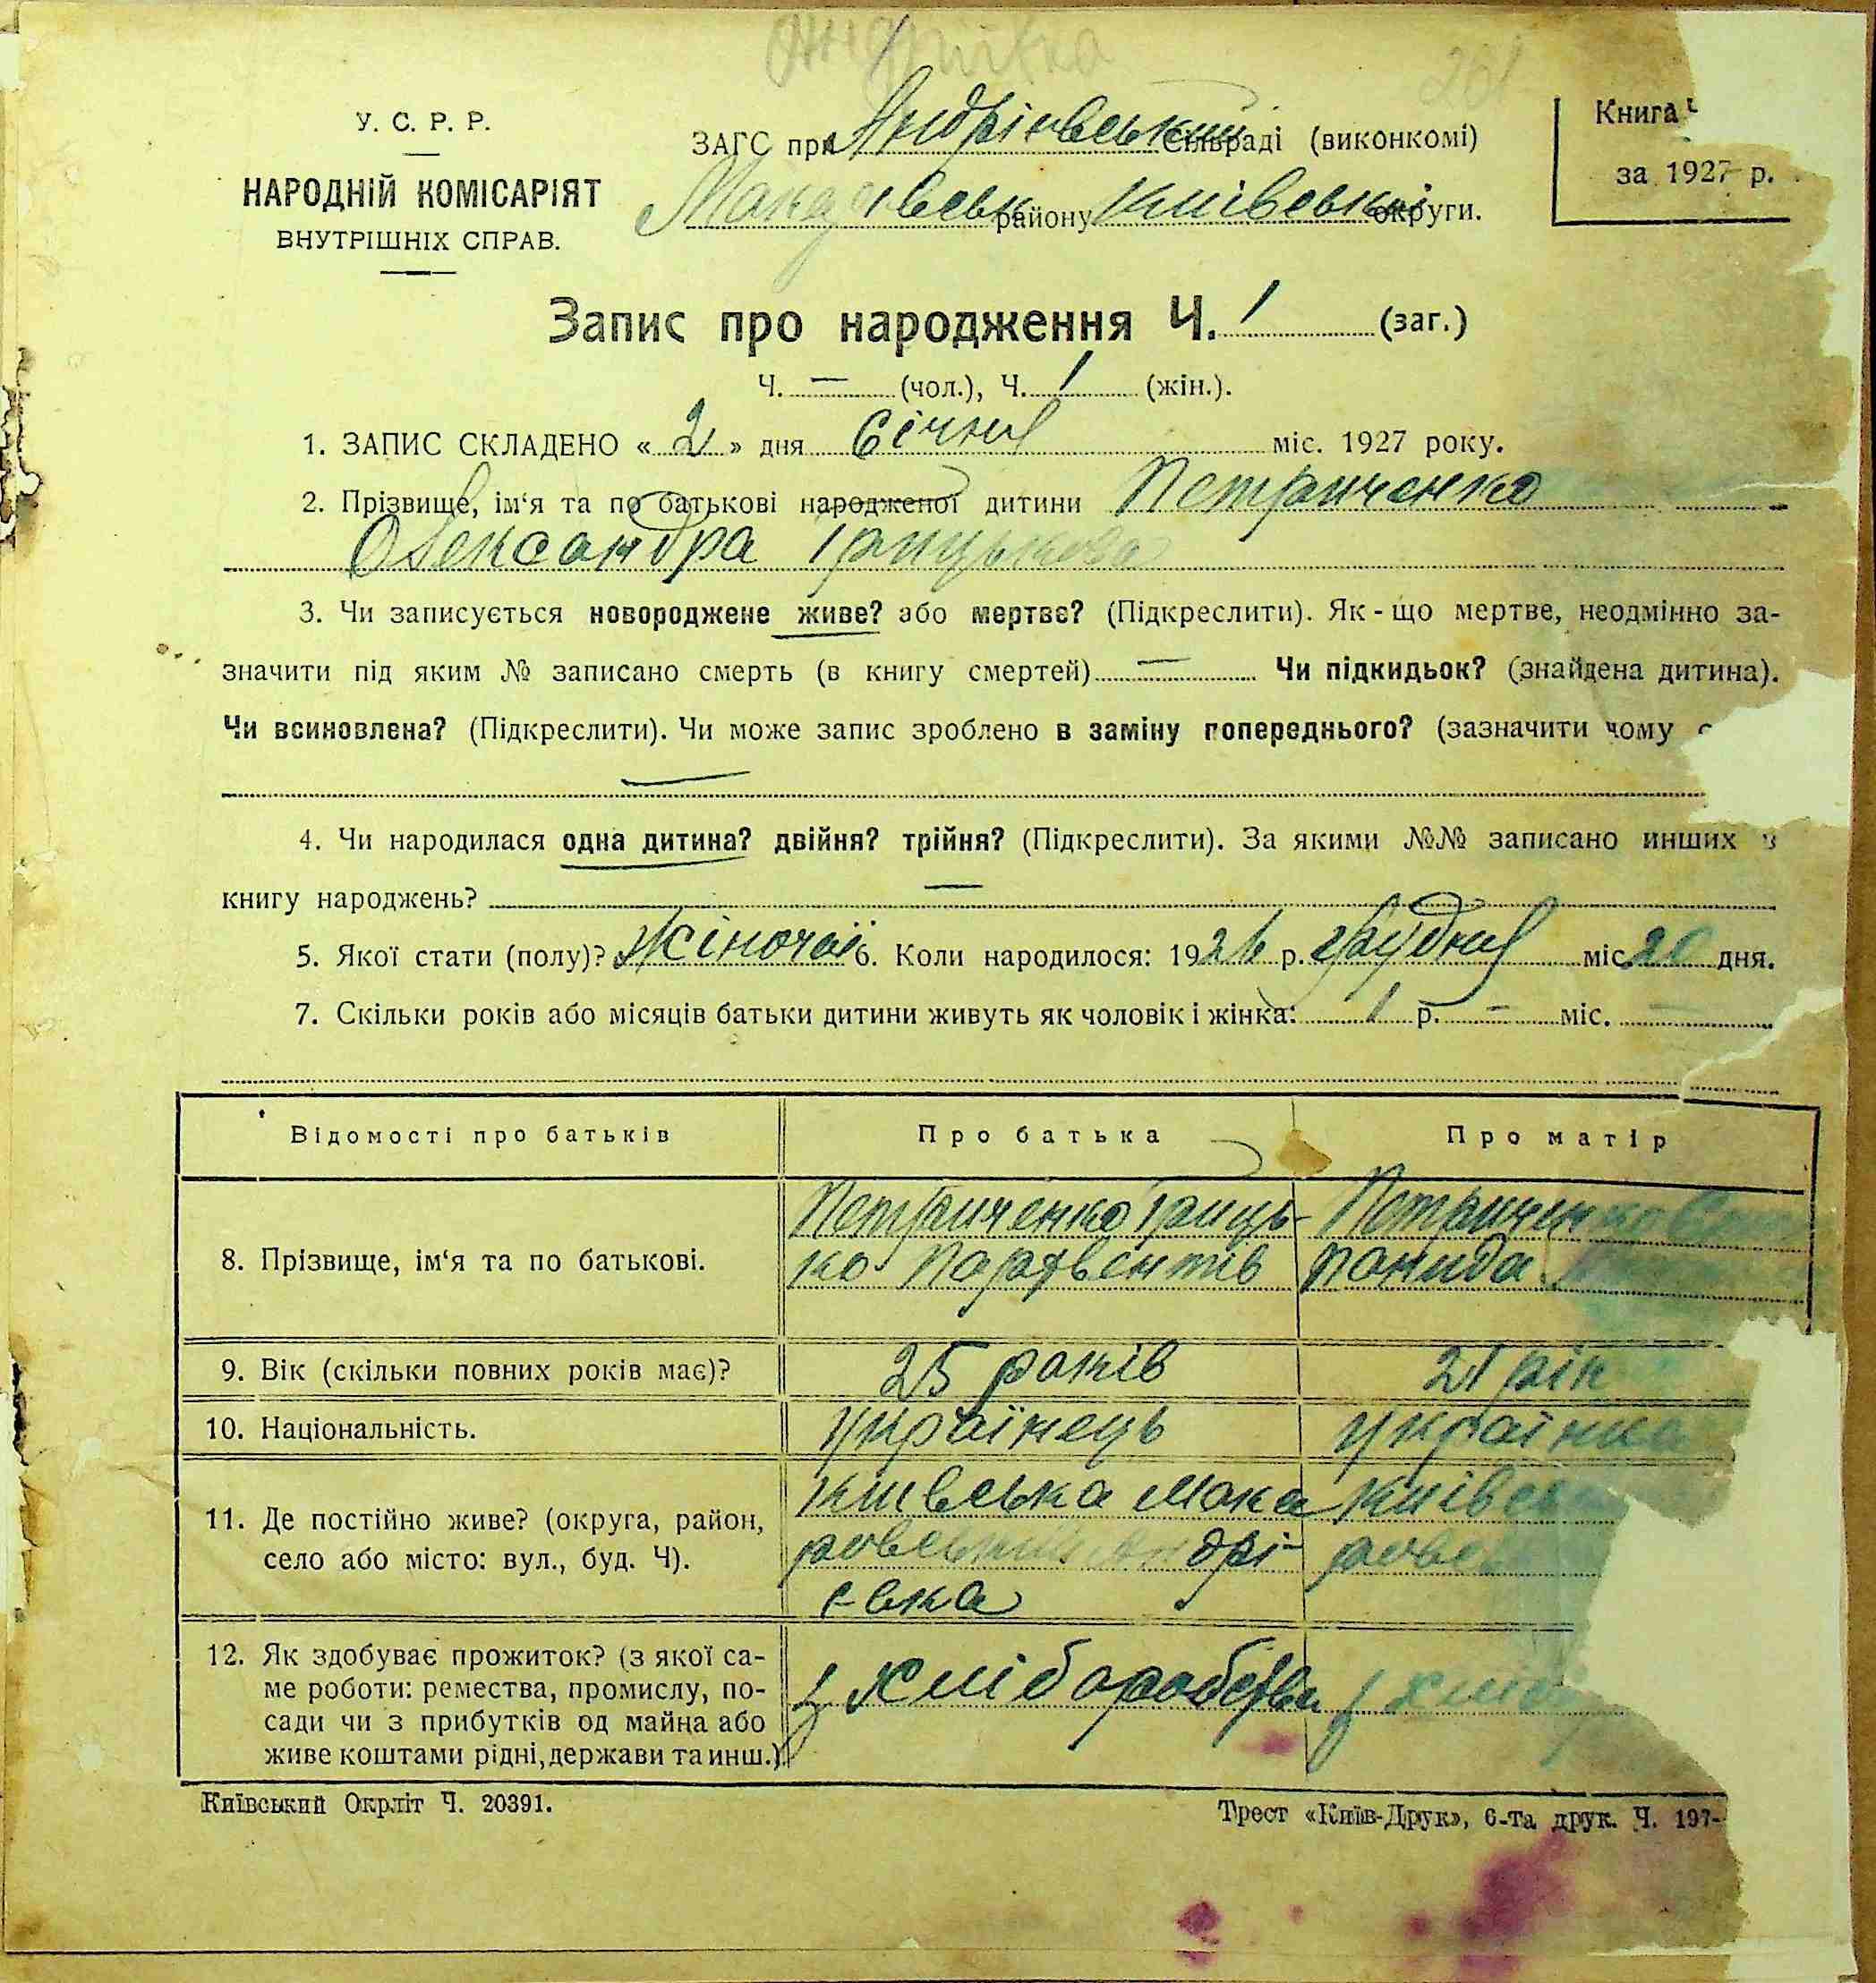 Андріївка
261
У. С. Р. Р.
НАРОДНІЙ КОМІСАРІЯТ
ВНУТРІШНІХ СПРАВ.
ЗАГС при Андріівській сільраді (виконкомі)
Макарівськ району Київської округи.
Книга Ч
за 1927 р.
Запис про народження Ч. 1 (заг.)
Ч. — (чол.), Ч. 1 (жін.).
1. ЗАПИС СКЛАДЕНО « 2 » дня Січня міс. 1927 року.
2. Прізвище, ім‘я та по батькові народженої дитини Петриченко
Олександра Грицькова
3. Чи записується новороджене живе? або мертве? (Підкреслити). Як-що мертве, неодмінно за-
значити під яким № записано смерть (в книгу смертей) — Чи підкидьок? (знайдена дитина).
Чи всиновлена? (Підкреслити). Чи може запис зроблено в заміну попереднього? (зазначити чому
—
4. Чи народилася одна дитина? двійня? трійня? (Підкреслити). За якими №№ записано инших в
книгу народжень? —
5. Якої стати (полу)? Жіночої 6. Коли народилося: 1926 р. грудня міс. 20 дня.
7. Скільки років або місяців батьки дитини живуть як чоловік і жінка: 1 р. — міс. —
Відомості про батьків Про батька Про матір
8. Прізвище, ім‘я та по батькові.
Петриченко Гриць-
ко Парфвентів
Петриченко
9. Вік (скільки повних років має)? 25 років 21 рік
10. Національність. Українець Українка
11. Де постійно живе? (округа, район,
село або місто: вул., буд. Ч).
Київська Мака
ровський Андрі-
євка
Київсь
рове
12. Як здобуває прожиток? (з якої са-
ме роботи: ремества, промислу, по-
сади чи з прибутків од майна або
живе коштами рідні, держави та инш.).
з хліборобства
з хліб
Київський Окрліт Ч. 20391.
Трест «Київ-Друк», 6-та друк. Ч. 197-